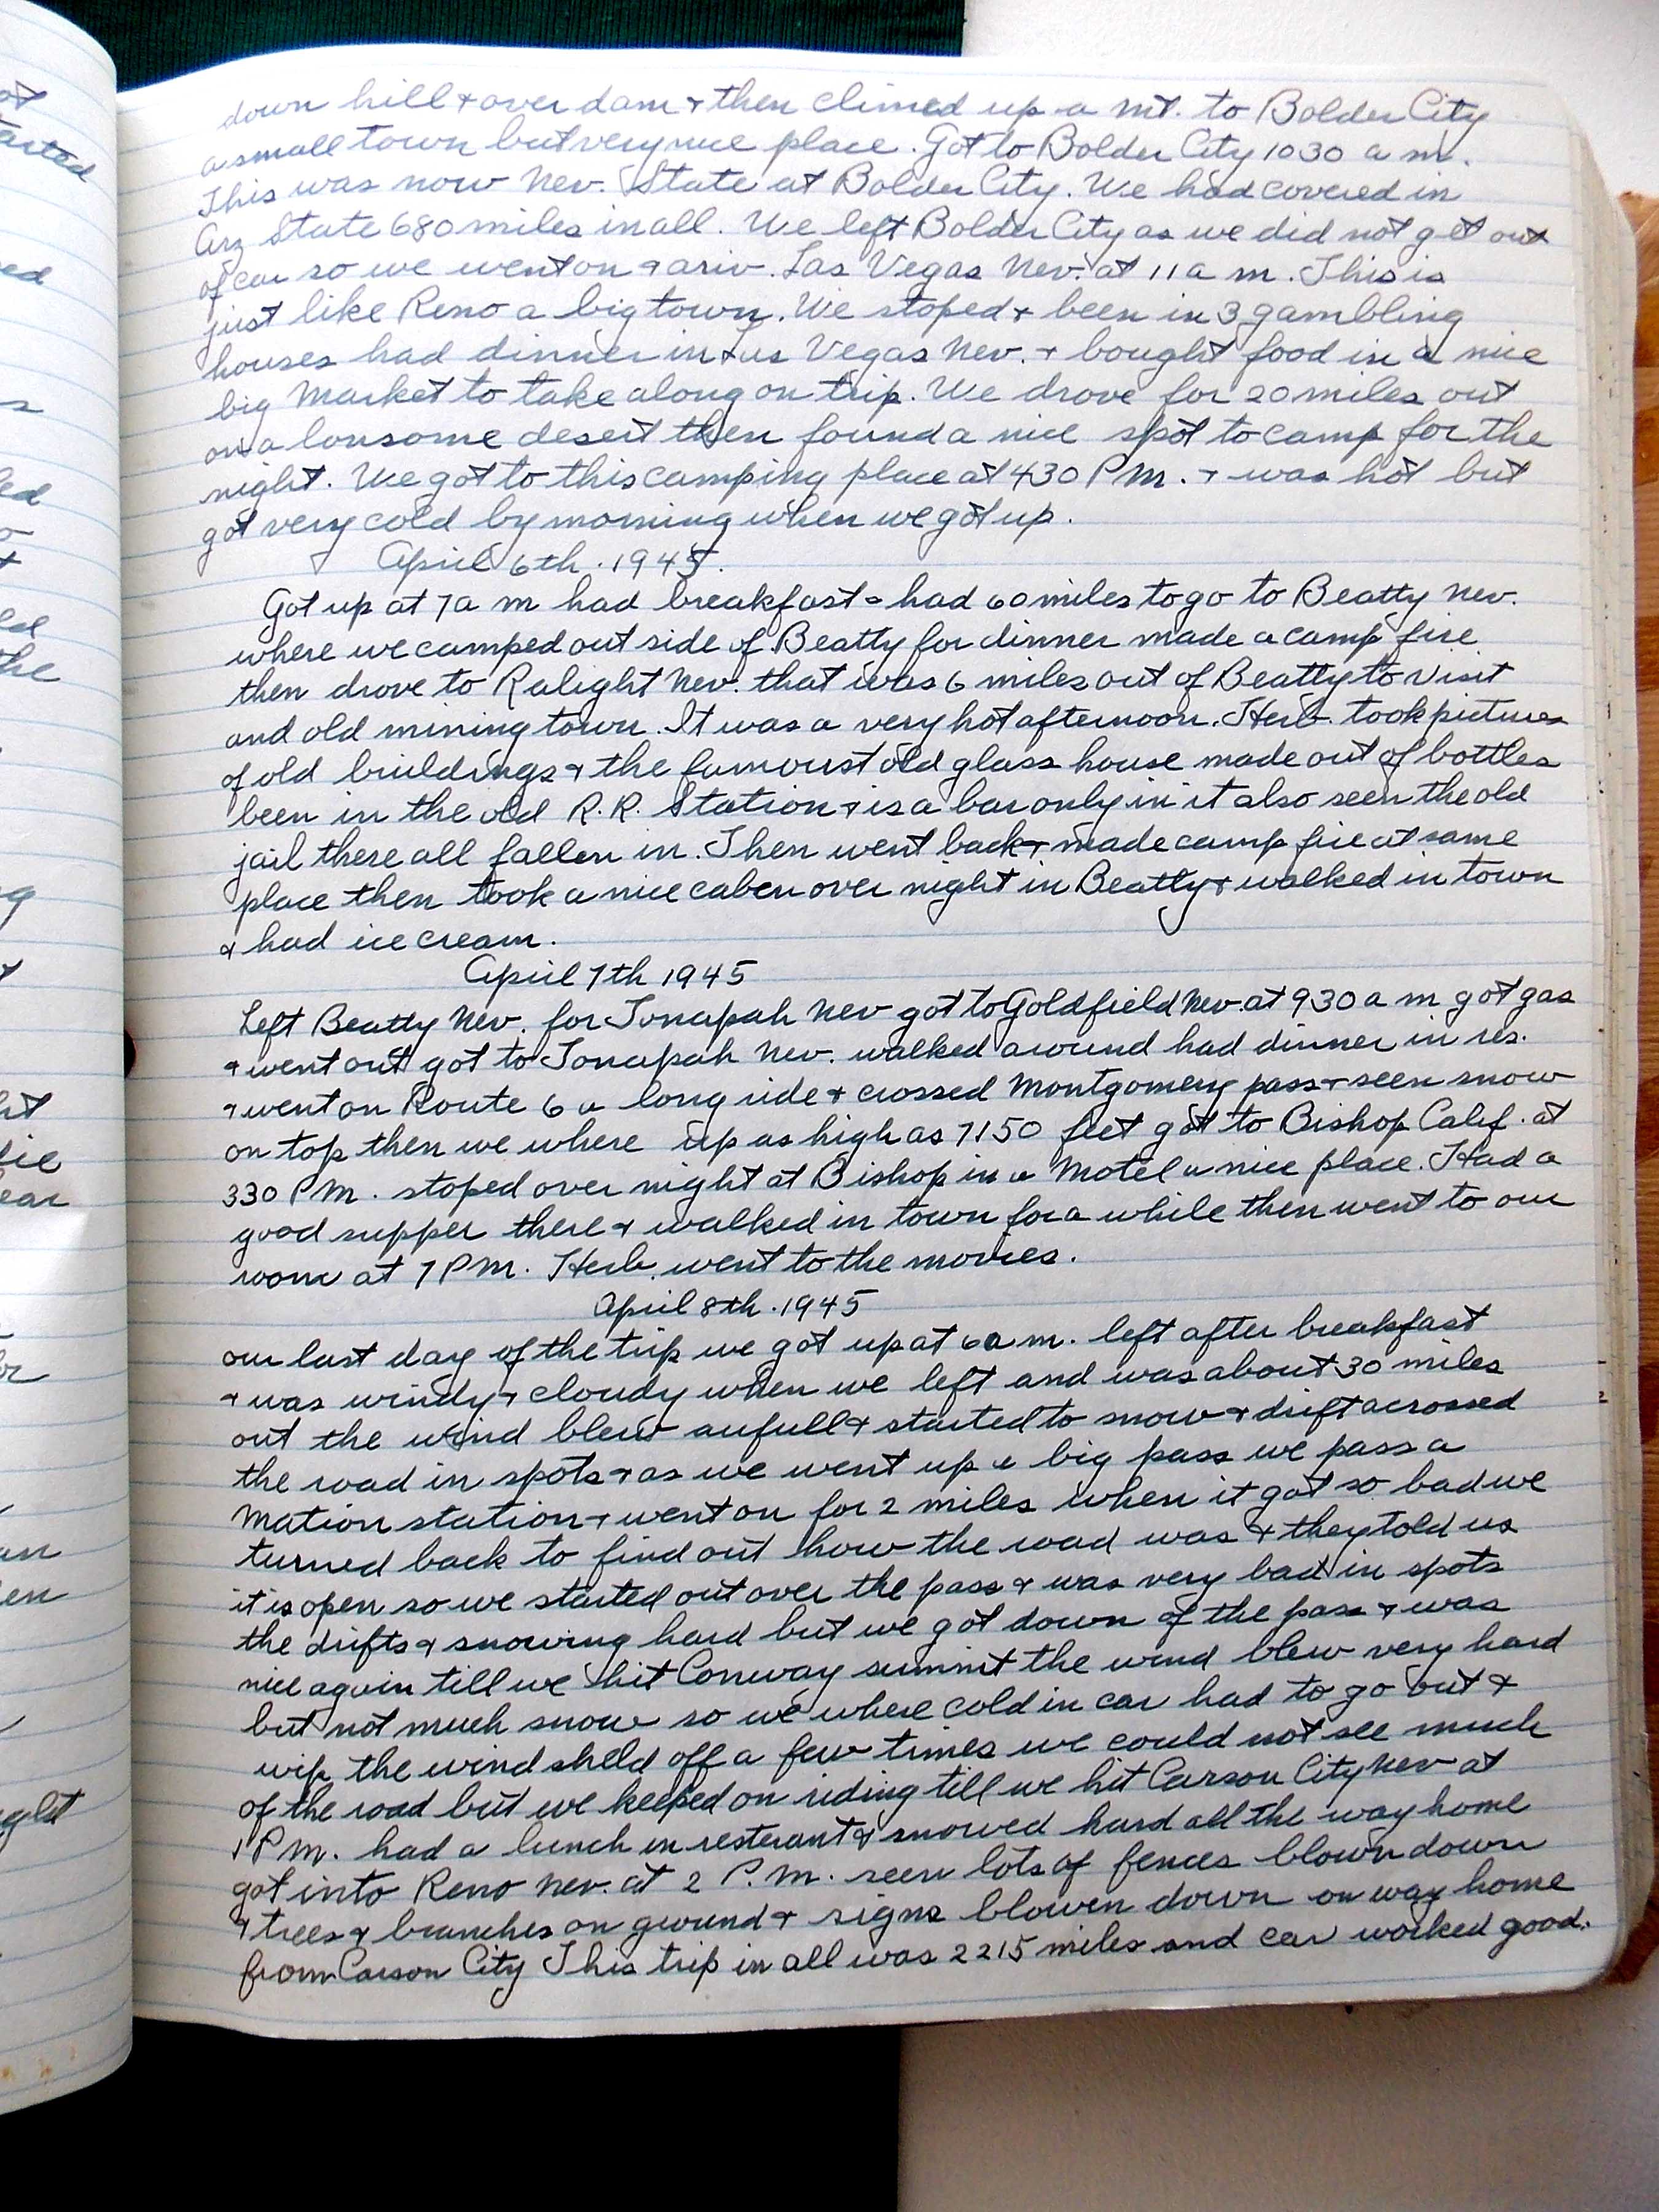 down hill & over dam & then climed up a mt. to Bolder City
a small town but very nice place. Got to Bolder City 1030 a m.
This was now Nev. State at Bolder City. We had covered in
Arz State 680 miles in all. We left Bolder City as we did not get out
of car so we went on & ariv. Las Vegas Nev. at 11 a m. This is
just like Reno a big town. We stoped & been in 3 gambling
houses had dinner in Las Vegas Nev. & bought food in a nice
big Market to take along on trip. We drove for 20 miles out
on a lonsome desert then found a nice spot to camp for the
night. We got to this camping place at 430 P M. & was hot but
got very cold by morning when we got up.
April 6th. 1945.
Got up at 7 a m had breakfast & had 60 miles to go to Beatty Nev.
where we camped out side of Beatty for dinner made a camp fire
then drove to Ralight Nev. that was 6 miles out of Beatty to visit
and old mining town. It was a very hot afternoon. Herb. took pictures
of old buildings & the famoust old glass house made out of bottles
been in the old R.R. Station & is a bar only in it also seen the old
jail there all fallen in. Then went back & made camp fire at same
place then took a nice caben over night in Beatty & walked in town
& had ice cream.
April 7th 1945
Left Beatty Nev. for Tonapah Nev got to Goldfield Nev. at 930 a m got gas
& went out got to Tonapah Nev. walked around had dinner in res.
& went on Route 6 a long ride & crossed Montgomery pass & seen snow
on top then we where up as high as 7150 feet got to Bishop Calif. at
330 P M. stoped over night at Bishop in a Motel a nice place. Had a
good supper there & walked in town for a while then went to our
room at 7 P M. Herb. went to the movies.
April 8th. 1945
our last day of the trip we got up at 6 a m. left after breakfast
& was windy & cloudy when we left and was about 30 miles
out the wind blew aufull & started to snow & drift acrossed
the road in spots & as we went up a big pass we pass a
Mation station & went on for 2 miles when it got so bad we
turned back to find out how the road was & they told us
it is open so we started out over the pass & was very bad in spots
the drifts & snowing hard but we got down of the pass & was
nice again till we hit Conway summit the wind blew very hard
but not much snow so we where cold in car had to go out &
wip the wind sheld off a few times we could not see much
of the road but we keeped on riding till we hit Carson City Nev at
1 P M. had a lunch in resterant & snowed hard all the way home
got into Reno Nev. at 2 P.M. seen lots of fences blown down
& trees & branches on ground & signs blowen down on way home
from Carson City This trip in all was 2215 miles and car worked good.